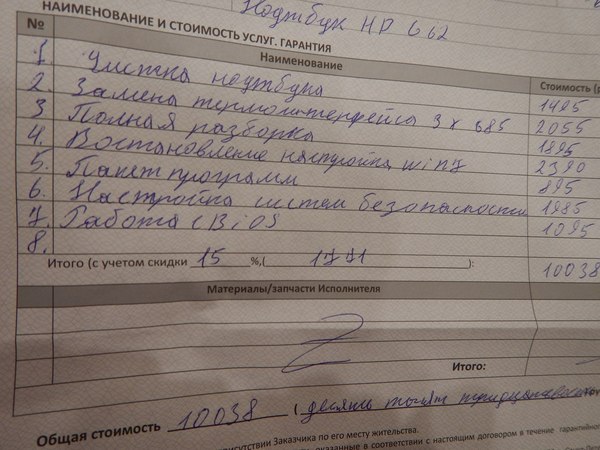 Ноутбук HP G62
НАИМЕНОВАНИЕ И СТОИМОСТЬ УСЛУГ. ГАРАНТИЯ
№ Наименование Стоимость (р
1. Чистка ноутбука 1495
2. Замена термоинтерфейса 3 х 685 2055
3 Полная разборка 1895
4. Востановление настройка win7 2390
5. Пакет программ 895
6. Настройка систем безопасности 1985
7. Работа с BiOS 1095
8.
Итого (с учетом скидки 15 %,( 1771 ): 10038
Материалы/запчасти Исполнителя
Итого:
Общая стоимость 10038 ( десять тысяч тридцать
присутствии Заказчика по его месту жительства.
оказанные в соответствии с настоящим договором в течение гарантийного